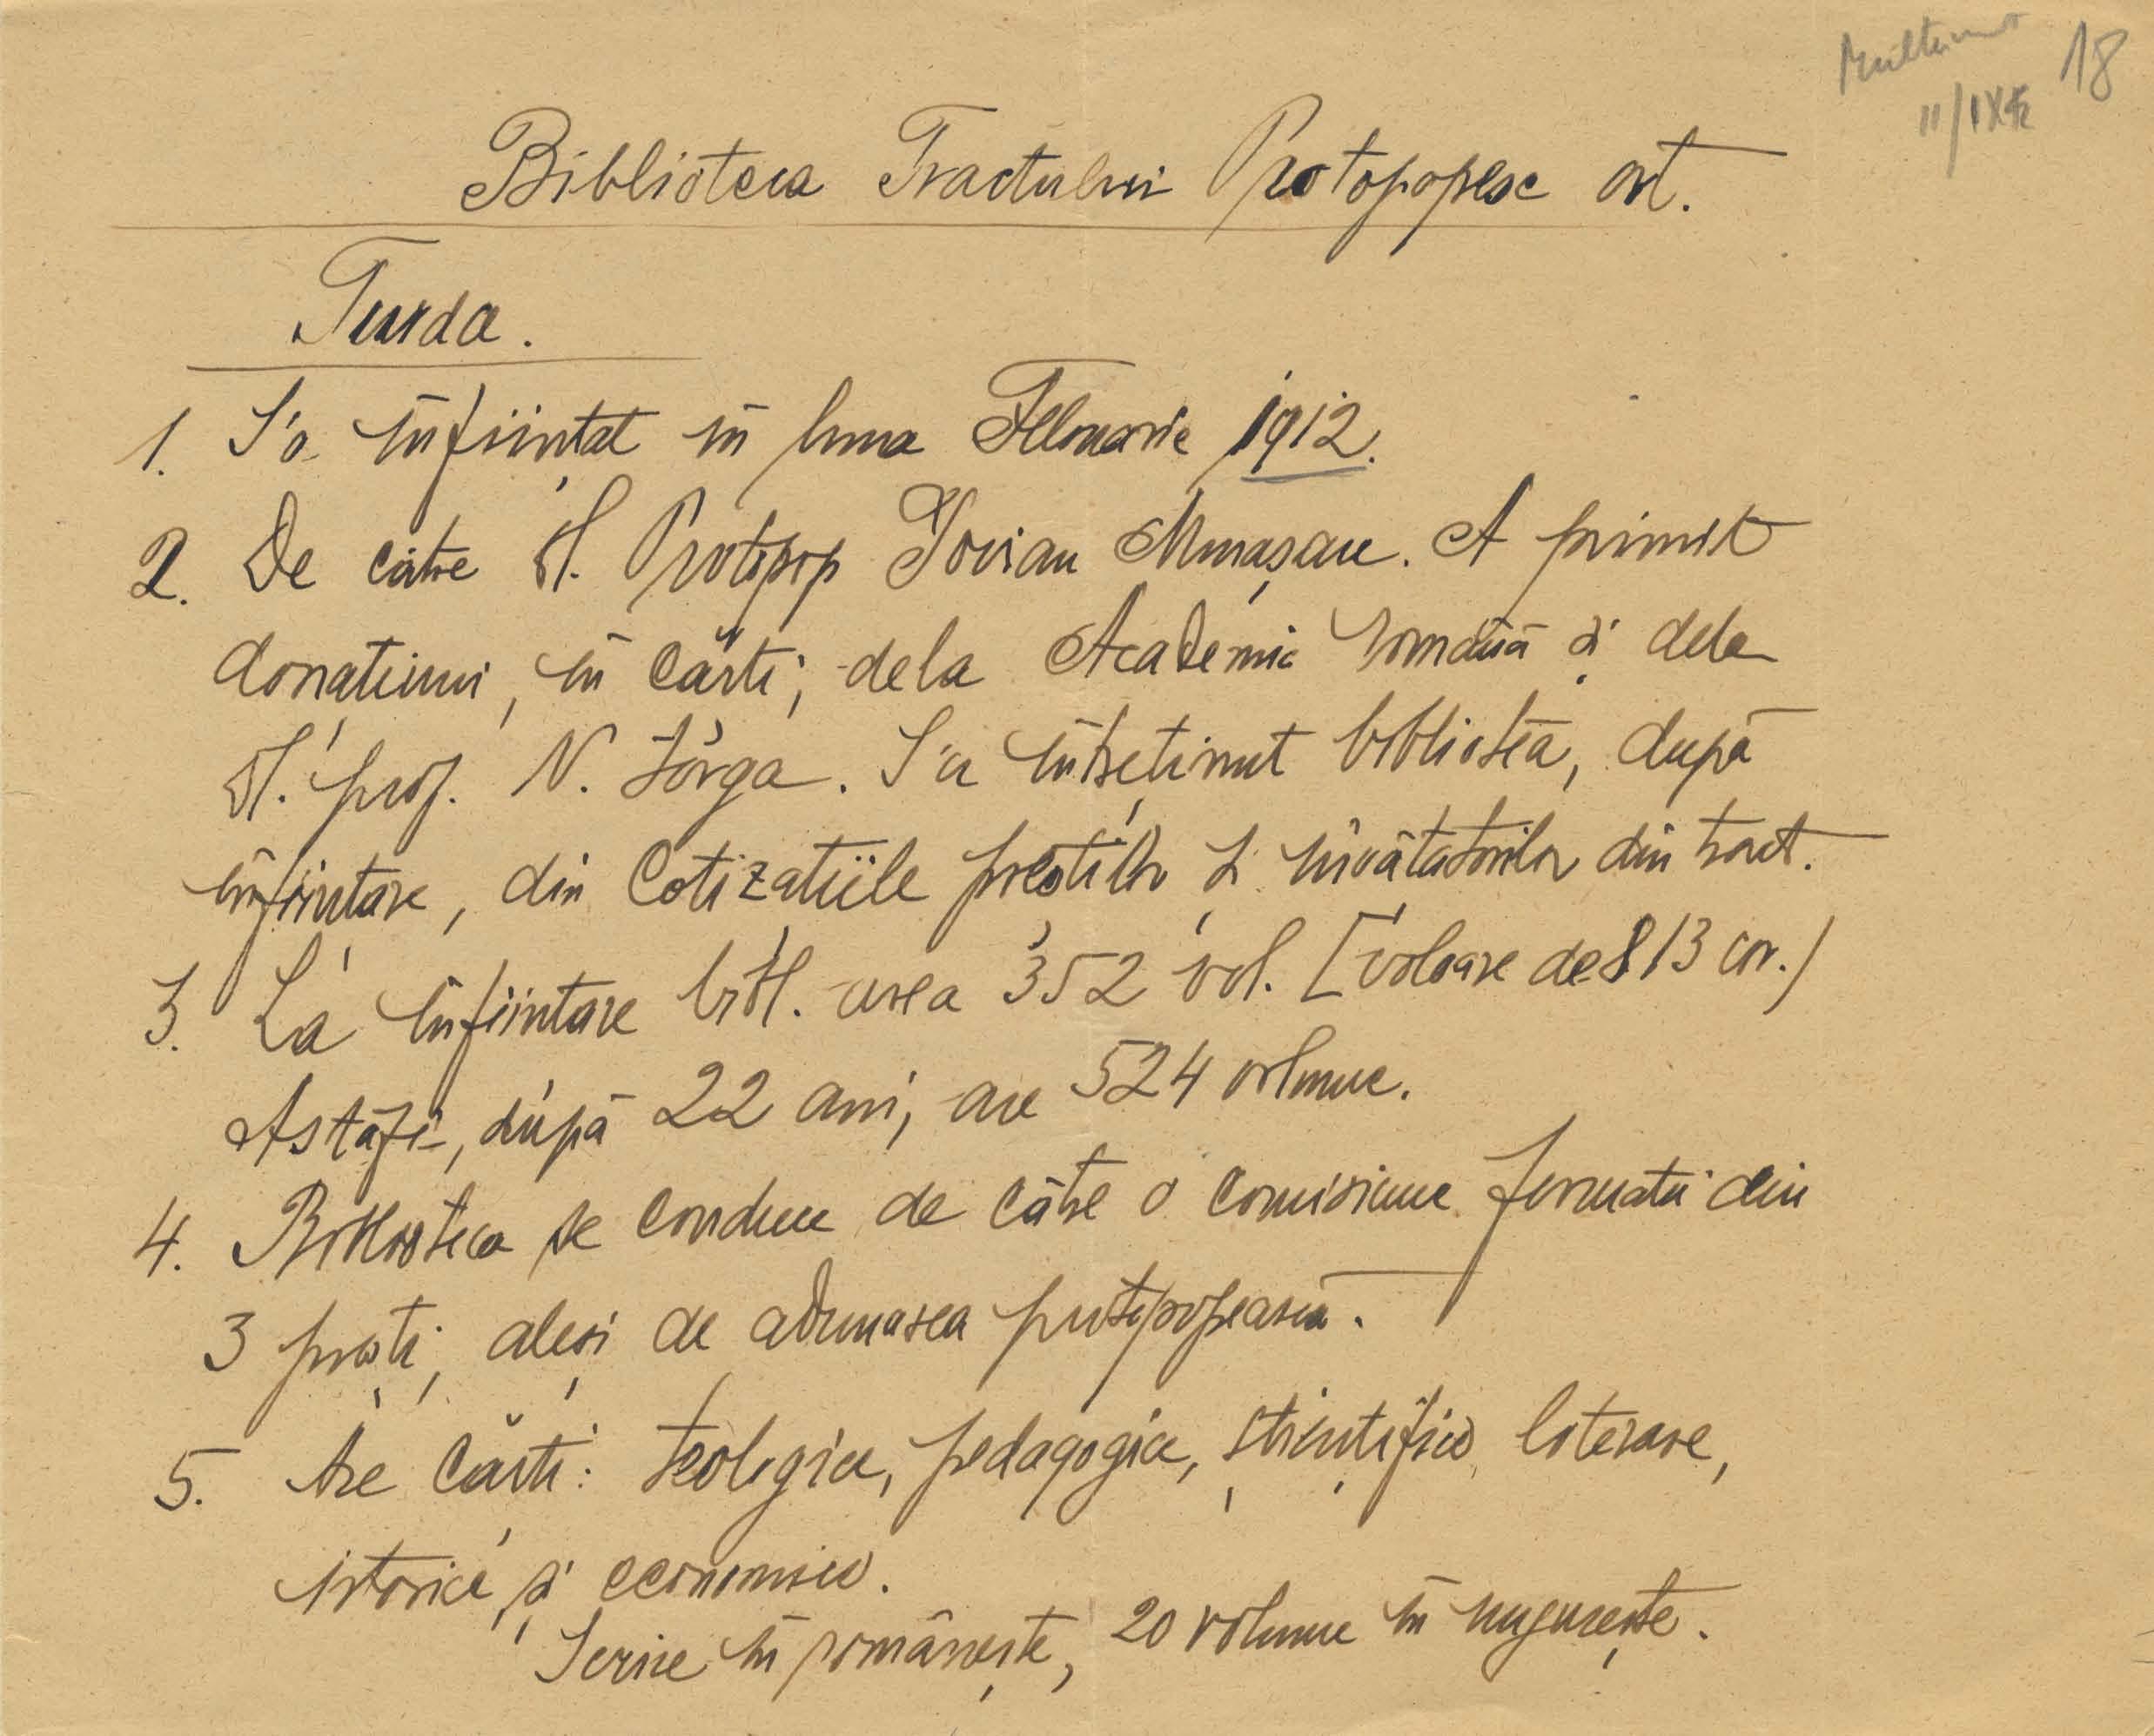 18
II/IX
Biblioteca Tractului Protopopesc ort.
Turda.
1. S'a înființat în luna Februarie 1912.
2. De către Sf. Protopop Iovian Murășan. A primit
donațiuni, în cărți, dela Academia română și dela
dl. prof. N. Iorga. S'a întreținut biblioteca, după
înființare, din cotizațiile preoților și învățătorilor din tract.
3. La înființare bibl. avea 352 vol. [valoare de 813 cor.)
Astăzi, după 22 ani, are 524 volume.
4. Biblioteca se conduce de către o comisiune formată din
3 preoți, aleși de adunarea protopopească.
5. Are cărți: teologice, pedagogice, științifice, literare,
istorice, și economice.
Scrise în românește, 20 volume în ungurește.